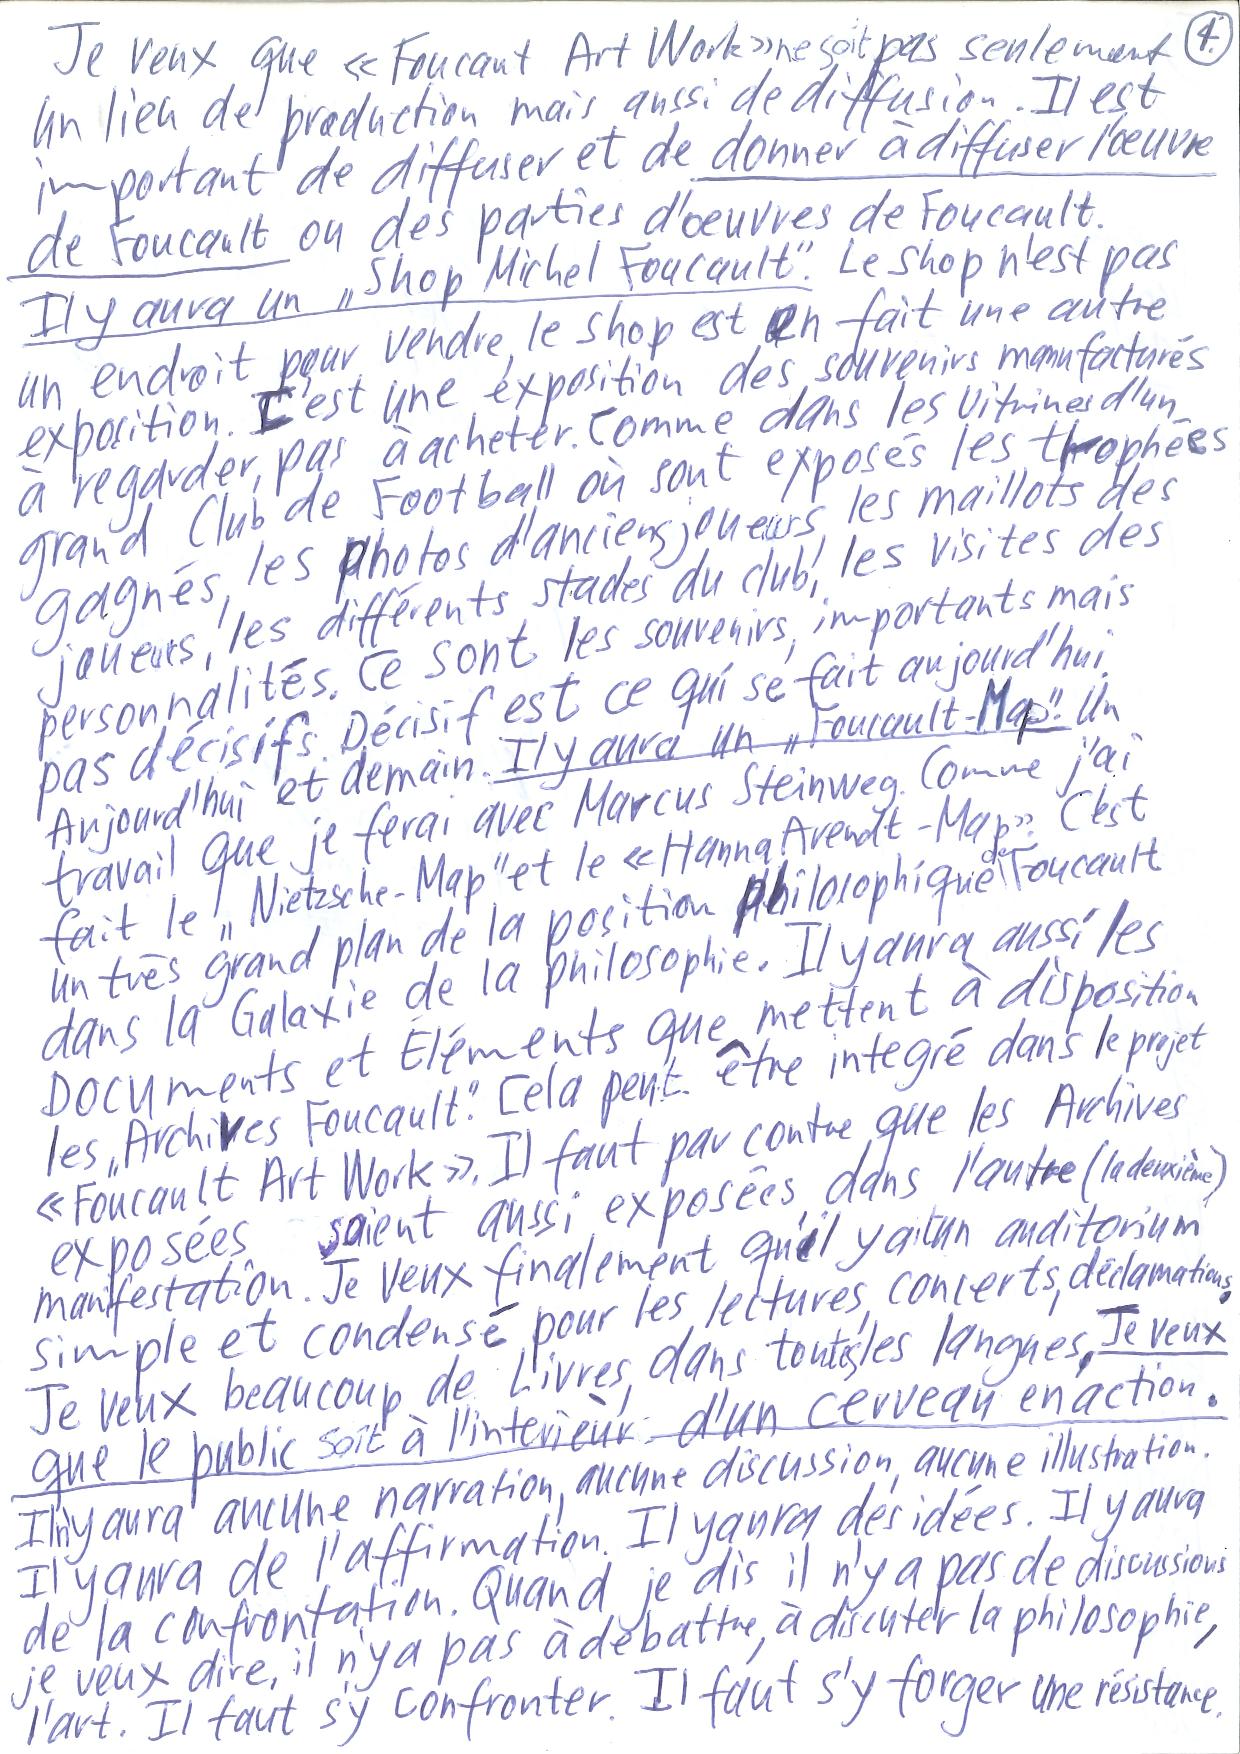 4.
Je veux que «Foucaut Art Work» ne soit pas seulement
un lieu de production mais aussi de diffusion. Il est
important de diffuser et de donner à diffuser l'œuvre
de Foucault ou des parties d'œuvres de Foucault.
Il y aura un „Shop Michel Foucault". Le shop n'est pas
un endroit pour vendre, le shop est en fait une autre
exposition. C'est une éxposition des souvenirs manufacturés
à regarder, pas à acheter. Comme dans les vitrines d'un
grand Club de Football où sont exposés les throphées
gagnés, les photos d'anciens joueurs, les maillots des
joueurs, les différents stades du club, les visites des
personnalités. Ce sont les souvenirs, importants mais
pas décisifs. Décisif est ce qui se fait aujourd'hui.
Aujourd'hui et demain. Il y aura un „Foucault-Map". Un
travail que je ferai avec Marcus Steinweg. Comme j'ai
fait le „Nietzsche-Map" et le «Hanna Arendt-Map». C'est
un très grand plan de la position philosophique de Foucault
dans la Galaxie de la philosophie. Il y aura aussi les
Documents et Éléments que mettent à disposition
les „Archives Foucault". Cela peut être integré dans le projet
«Foucault Art Work». Il faut par contre que les Archives
exposées soient aussi exposées dans l'autre (la deuxième)
manifestation. Je veux finalement qu'il y ait un auditorium
simple et condensé pour les lectures, concerts, déclamations.
Je veux beaucoup de Livres, dans toutes les langues, Je veux
que le public soit à l'interieur d'un cerveau en action.
Il n'y aura aucune narration, aucune discussion, aucune illustration.
Il y aura de l'affirmation. Il y aura des idées. Il y aura
de la confrontation. Quand je dis il n'y a pas de discussions
je veux dire, il n'y a pas à débattre, à discuter la philosophie,
l'art. Il faut s'y confronter. Il faut s'y forger une résistance.